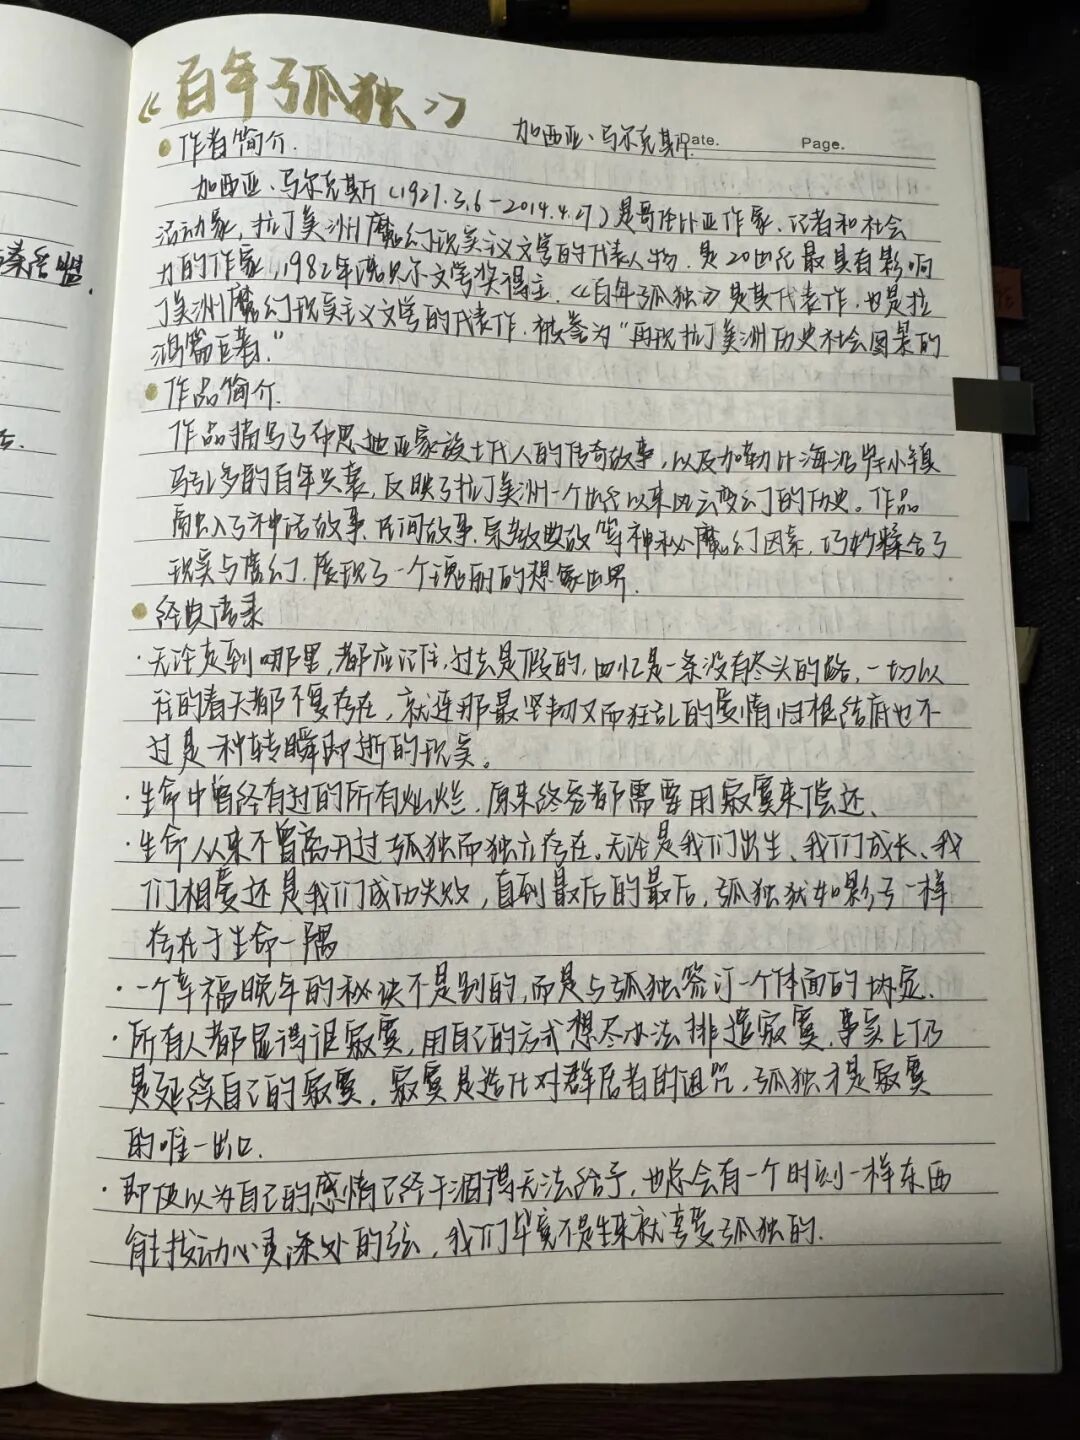 《百年孤独》
加西亚·马尔克斯 Date. Page.
作者简介.
加西亚·马尔克斯(1927.3.6-2014.4.27)是哥伦比亚作家、记者和社会
活动家,拉丁美洲魔幻现实主义文学的代表人物.是20世纪最具有影响
力的作家,1982年诺贝尔文学奖得主.《百年孤独》是其代表作,也是拉
丁美洲魔幻现实主义文学的代表作.被誉为“再现拉丁美洲历史社会图景的
鸿篇巨著.”
作品简介.
作品描写了布恩迪亚家族七代人的传奇故事,以及加勒比海沿岸小镇
马孔多的百年兴衰,反映了拉丁美洲一个世纪以来风云变幻的历史。作品
融入了神话故事、民间故事、宗教典故等神秘魔幻因素,巧妙糅合了
现实与魔幻.展现了一个瑰丽的想象世界.
经典语录
·无论走到哪里,都应记住,过去是假的,回忆是一条没有尽头的路,一切以
往的春天都不复存在,就连那最坚韧又而狂乱的爱情归根结底也不
过是一种转瞬即逝的现实。
·生命中曾经有过的所有灿烂,原来终究都需要用寂寞来偿还.
·生命从来不曾离开过孤独而独立存在。无论是我们出生、我们成长、我
们相爱还是我们成功失败,直到最后的最后,孤独犹如影子一样
存在于生命一隅
·一个幸福晚年的秘诀不是别的,而是与孤独签订一个体面的协定.
·所有人都显得很寂寞,用自己的方式想尽办法排遣寂寞,事实上仍
是延续自己的寂寞.寂寞是造化对群居者的诅咒,孤独才是寂寞
的唯一出口.
·即使以为自己的感情已经干涸得无法给予,也总会有一个时刻一样东西
能拨动心灵深处的弦,我们毕竟不是生来就享受孤独的.